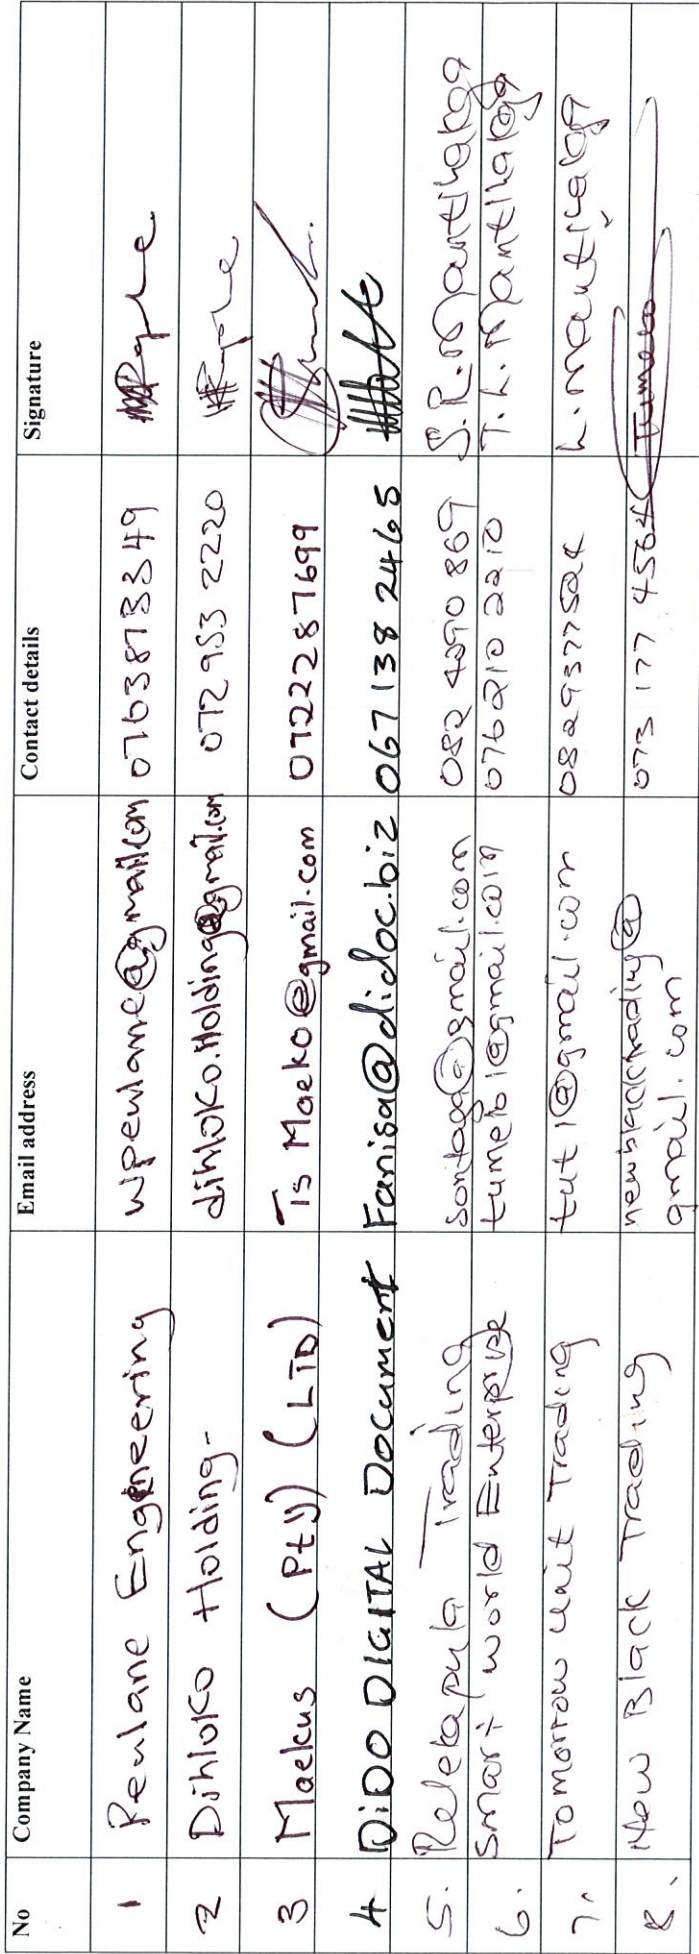 No Company Name Email address Contact details Signature
1 Penlane Engineering wpenlane@gmail.com 0763873349
2 Dihloko Holding- dihloko.Holding@gmail.com 072 953 2220
3 Maekus (Pty) (LTD) Ts Maeko@gmail.com 0722287699
4 DiDO DIGITAL Document Fanisa@didoc.biz 067 138 2465
5. Relekapula Trading sontaga@gmail.com 082 4090 869 S.R. Mantlhakga
6. Smart world Enterprize tumelo1@gmail.com 076 210 2210 T.L. Mantlhakga
7. Tomorrow Unit Trading tut1@gmail.com 0829377524
8. New Black Trading newblacktrading@ 073 177 4564 Tumelo
gmail.com